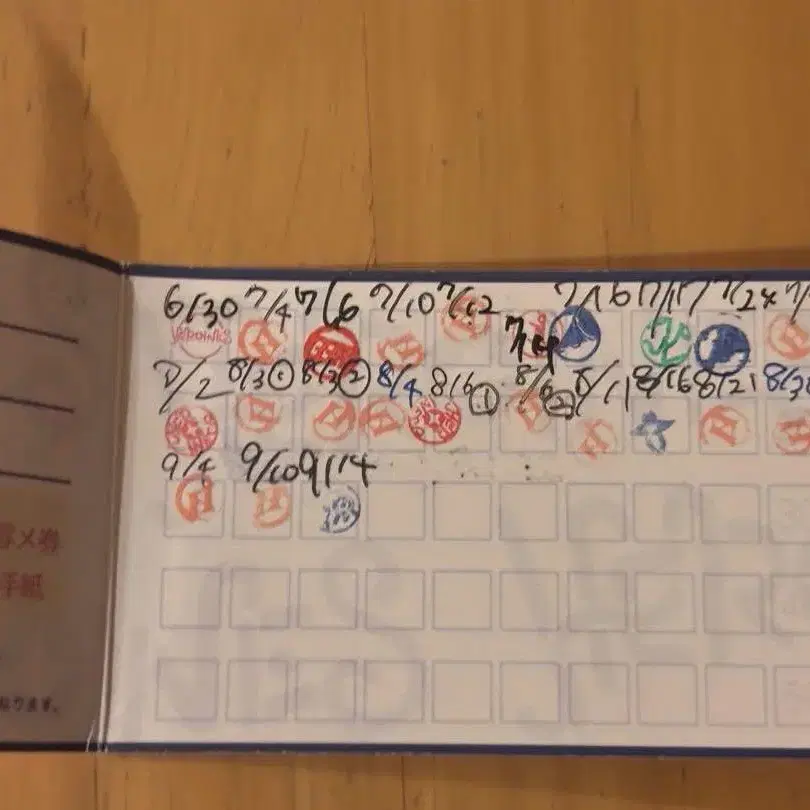 6/30 7/4 7/6 7/10 7/12 7/14 7/16 7/17 7/24
8/2 8/3① 8/3② 8/4 8/6① 8/6② 8/11 8/16 8/21
9/4 9/10 9/14
手紙
ります。